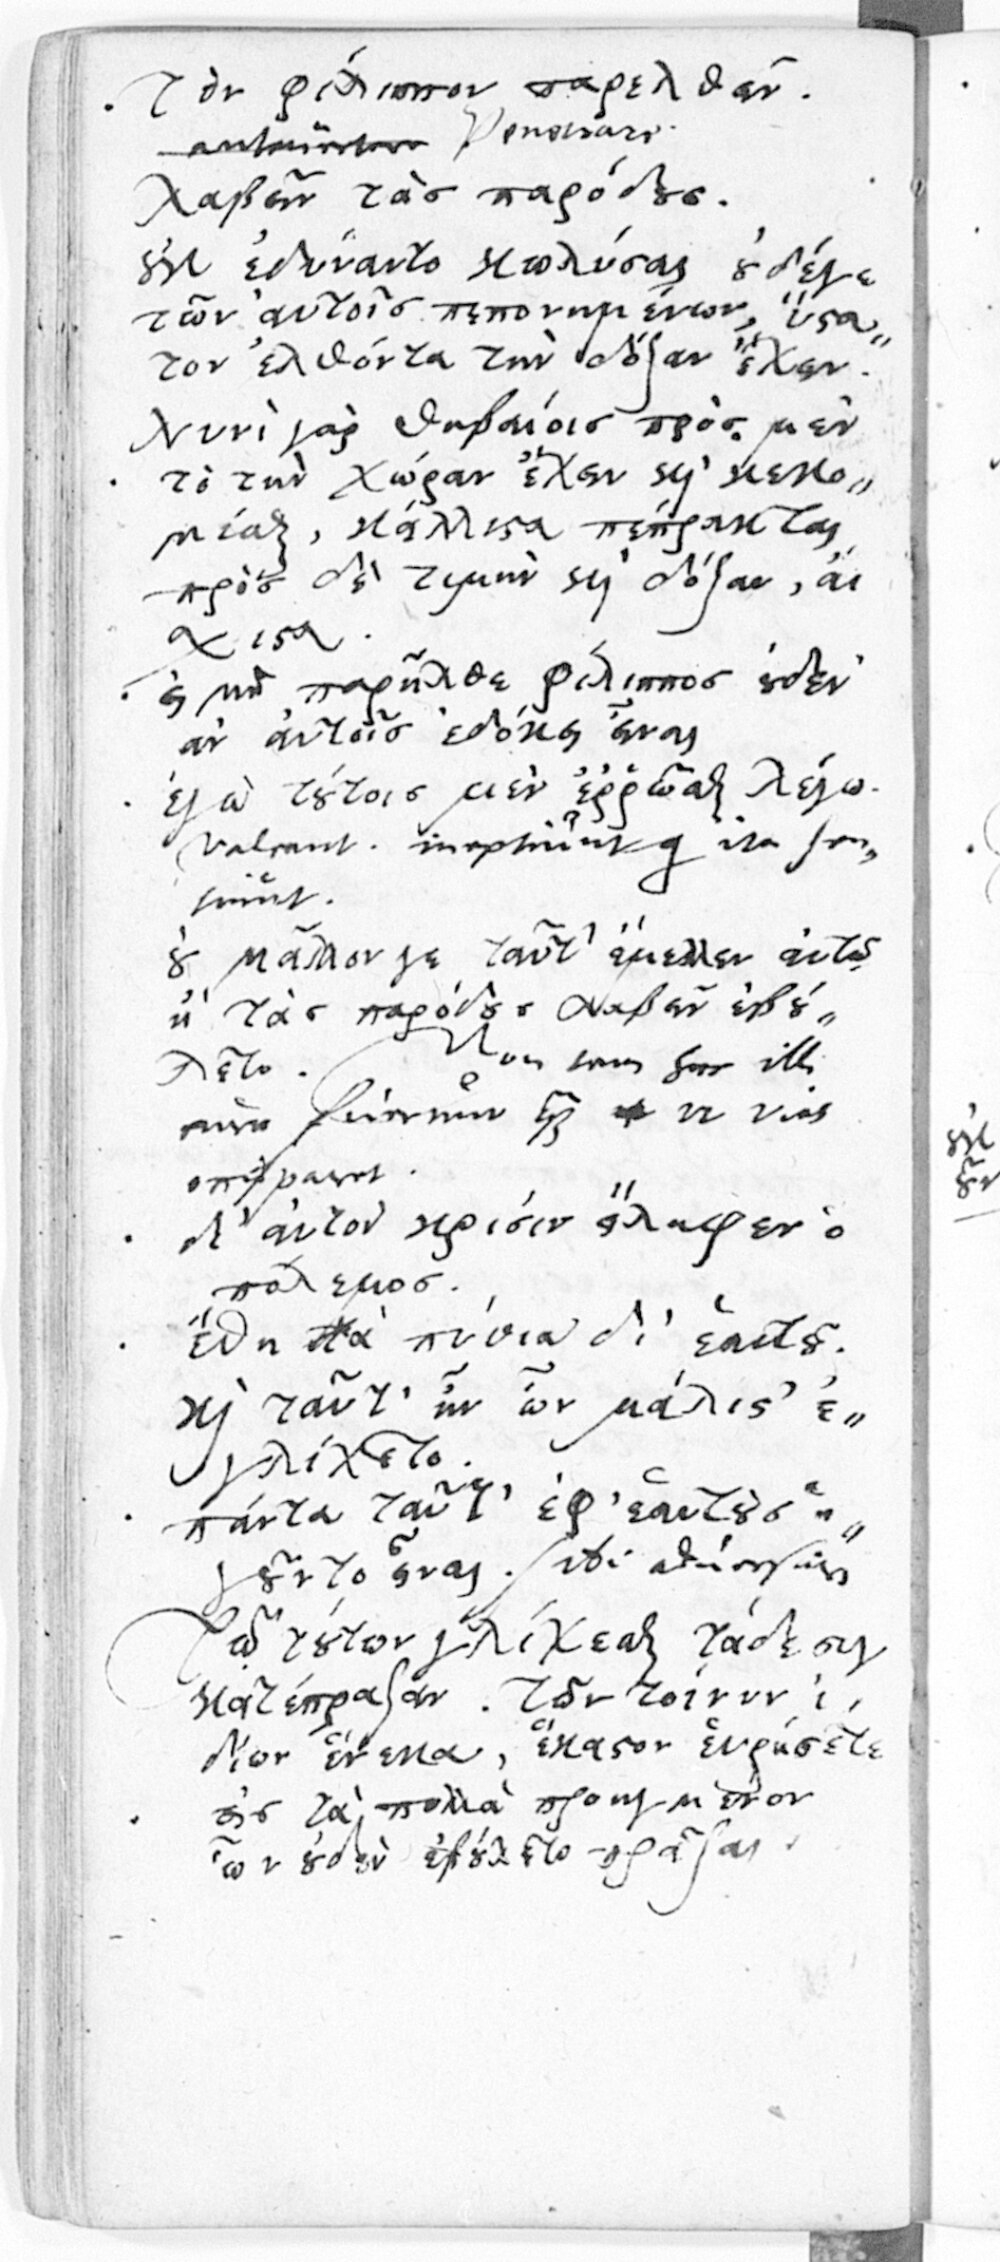 . τὸν φίλιππον παρελθεῖν.
Penetrare.
λαβεῖν τὰς παρόδους.
οὐκ ἐδύναντο κωλύσαι οὐδέ γε
τῶν αὐτοῖς πεπονημένων, ὕστα„
τον ἐλθόντα τὴν δόξαν ἔχειν.
νυνὶ γὰρ θηβαίοις πρὸς μὲν
. τὸ τὴν χώραν ἔχειν καὶ κεκο„
μίσθαι, κάλλιστα πέπρακται
πρὸς δὲ τιμὴν καὶ δόξαν, αἴ
σχιστα.
. εἰ μὴ παρῆλθε φίλιππος οὐδὲν
ἂν αὐτοῖς ἐδόκει εἶναι
. ἐγὼ τούτοις μὲν ἐρρῶσθαι λέγω.
Valeant. ineptiunt qui ita sen„
tiunt.
οὐ μᾶλλόν γε ταῦτ' ἔμελλεν αὐτῷ
ἢ τὰς παρόδους λαβεῖν ἐβού„
λετο. Non tam haec illi
vias
. δι' αὐτὸν κρίσιν εἴληφεν ὁ
πόλεμος.
. ἔθη τὰ πύθια δι' ἑαυτοῦ.
καὶ ταῦτ' ἦν ὧν μάλιστ' ἐ„
γλίχετο.
. πάντα ταῦθ' ἐφ' ἑαυτοὺς ἡ„
γοῦντο εἶναι.
τῷ τούτων γλίχεσθαι τάδε συγ
κατέπραξαν. τῶν τοίνυν ἰ,
δίων ἕνεκα, ἕκαστον εὑρήσετε
. εἰς τὰ πολλὰ προηγμένον
ὧν οὐδὲν ἐβούλετο πρᾶξαι.